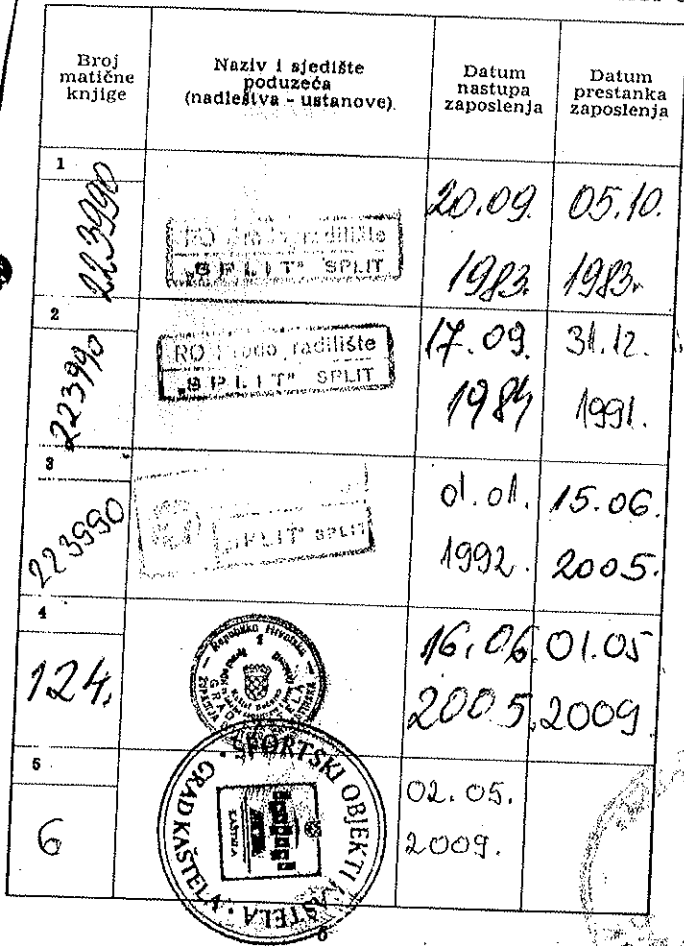 Broj
matične
knjige
Naziv i sjedište
poduzeća
(nadleštva - ustanove)
Datum
nastupa
zaposlenja
Datum
prestanka
zaposlenja
1
223990
RO radilište
"SPLIT" SPLIT
20.09.
1983.
05.10.
1983.
2
223990
RO radilište
"SPLIT" SPLIT
17.09.
1984
31.12.
1991.
3
223990
"SPLIT" SPLIT
01.01.
1992.
15.06.
2005.
4
124.
Republika Hrvatska
GRAD
16.06.
2005.
01.05
2009
5
6
SPORTSKI OBJEKTI KAŠTELA · GRAD KAŠTELA ·
KAŠTELA
02.05.
2009.
6